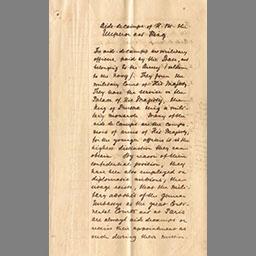 Aide de camps of H. M. the
Emperor and King
The aide de camps are military
officers, paid by the State, and
belonging to the Army (seldom
to the navy). They form the
military Court of His Majesty.
They have the service in the
Palace of His Majesty, the
King of Prussia being a mili-
tary monarch. Many of the
aide de Camps are the compa-
nions of arms of His Majesty,
for the younger officers it is the
highest distinction they can
obtain. By reason of their
confidential position, they
have been also employed on
diplomatic missions, their
usage exists, that the mili-
tary attachés of the German
Embassys at the great Conti-
nental Courts and at Paris
are always aide decamps or
receive their appointment as
such during their mission